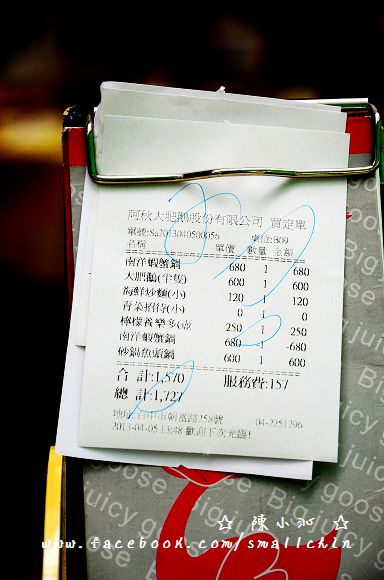 阿秋大肥鵝股份有限公司 買定單
單號:Sa2013040500056 桌位:B09
名稱 單價 數量 金額
南洋蝦蟹鍋 680 1 680
大肥鵝(半隻) 600 1 600
海鮮炒麵(小) 120 1 120
青菜招待(小) 0 1 0
檸檬養樂多(壺 250 1 250
南洋蝦蟹鍋 680 -1 -680
砂鍋魚頭鍋 600 1 600
合 計:1,570 服務費:157
總 計:1,727
地址:台中市朝富路258號 04-2251296
2013-04-05 13:48 歡迎下次光臨!
Big goose
juicy goose
☆ 陳小沁 ☆
www.facebook.com/smallchin